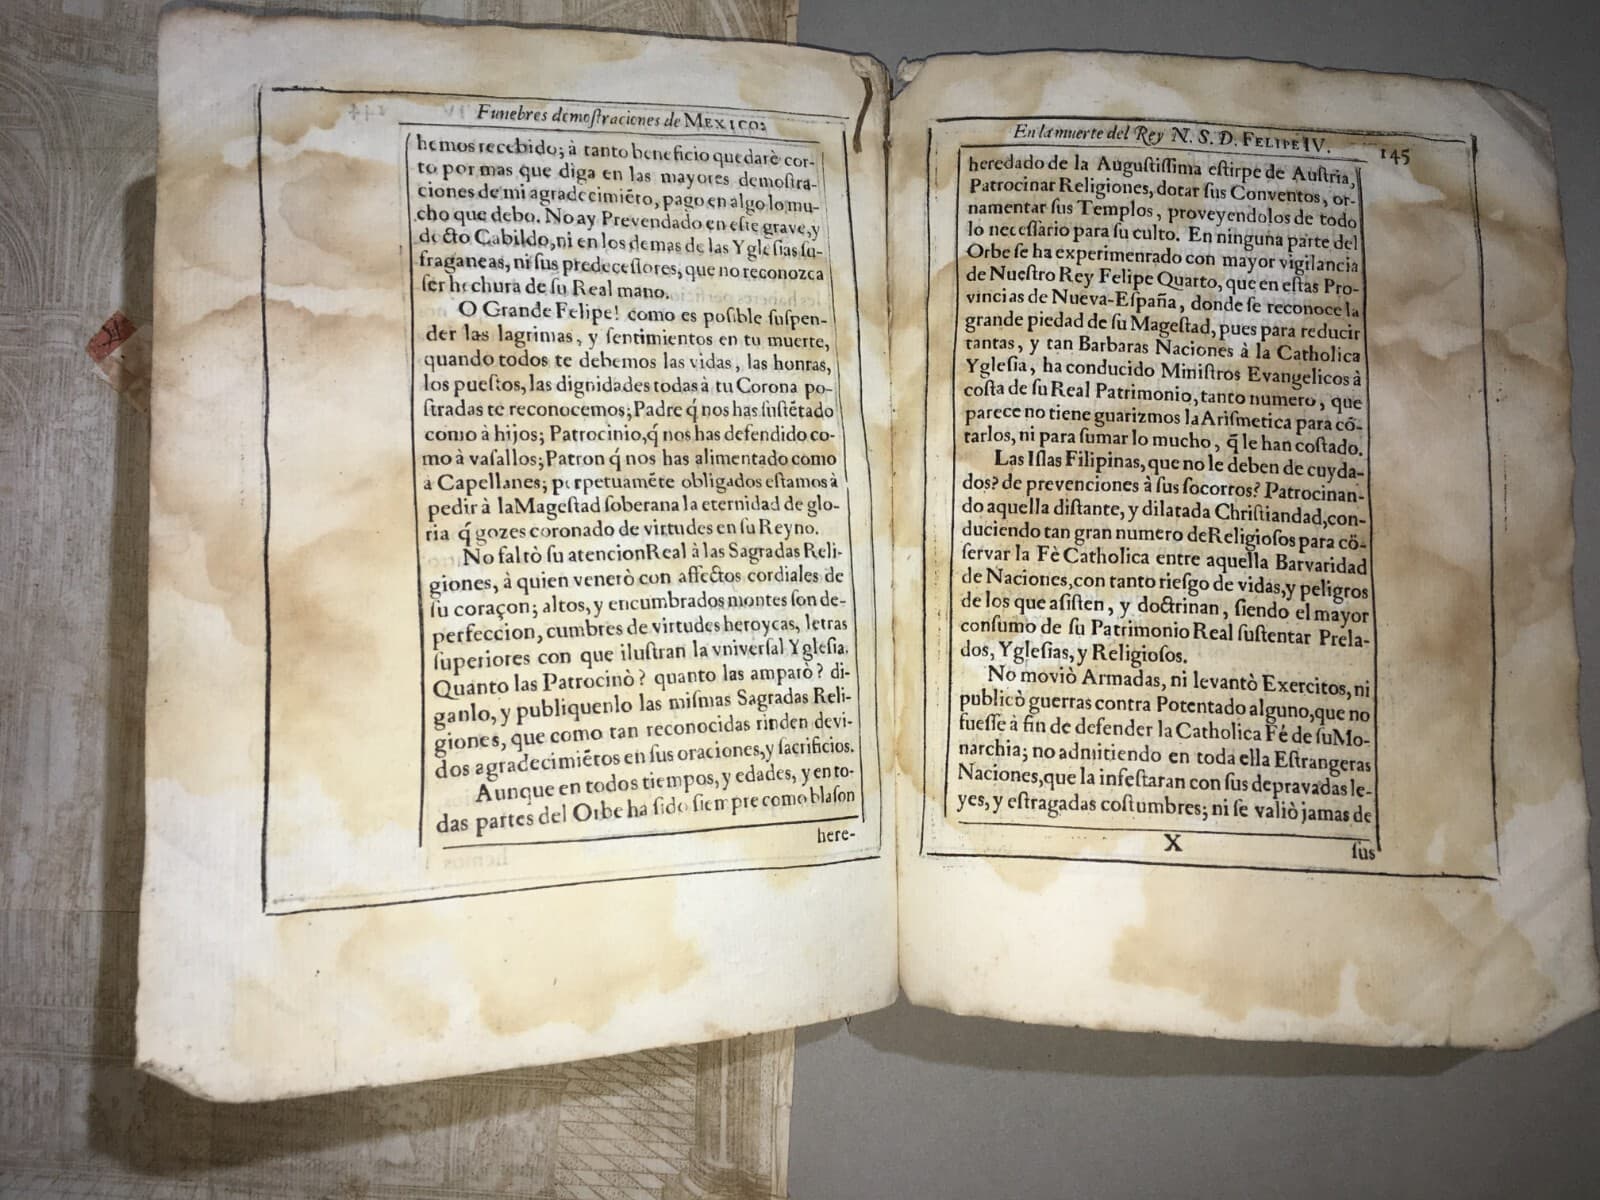 Funebres demoſtraciones de MEXICO:
hemos recebido; à tanto beneficio quedarè cor-
to por mas que diga en las mayores demoſtra-
ciones de mi agradecimiẽto, pago en algo lo mu-
cho que debo. No ay Prevendado en eſte grave, y
docto Cabildo, ni en los demas de las Ygleſias ſu-
fraganeas, ni ſus predeceſſores, que no reconozca
ſer hechura de ſu Real mano.
O Grande Felipe! como es poſible ſuſpen-
der las lagrimas, y ſentimientos en tu muerte,
quando todos te debemos las vidas, las honras,
los pueſtos, las dignidades todas à tu Corona po-
ſtradas te reconocemos; Padre q̃ nos has ſuſtẽtado
como à hijos; Patrocinio, q̃ nos has defendido co-
mo à vaſallos; Patron q̃ nos has alimentado como
à Capellanes; perpetuamẽte obligados eſtamos à
pedir à la Mageſtad ſoberana la eternidad de glo-
ria q̃ gozes coronado de virtudes en ſu Reyno.
No faltò ſu atencion Real à las Sagradas Reli-
giones, à quien venerò con affectos cordiales de
ſu coraçon; altos, y encumbrados montes ſon de
perfeccion, cumbres de virtudes heroycas, letras
ſuperiores con que iluſtran la vniverſal Ygleſia.
Quanto las Patrocinò? quanto las amparò? di-
ganlo, y publiquenlo las miſmas Sagradas Reli-
giones, que como tan reconocidas rinden devi-
dos agradecimiẽtos en ſus oraciones, y ſacrificios.
Aunque en todos tiempos, y edades, y en to-
das partes del Orbe ha ſido ſiempre como blaſon
here-
En la muerte del Rey N. S. D. FELIPE IV. 145
heredado de la Auguſtiſſima eſtirpe de Auſtria,
Patrocinar Religiones, dotar ſus Conventos, or-
namentar ſus Templos, proveyendolos de todo
lo neceſſario para ſu culto. En ninguna parte del
Orbe ſe ha experimenrado con mayor vigilancia
de Nueſtro Rey Felipe Quarto, que en eſtas Pro-
vincias de Nueva-Eſpaña, donde ſe reconoce la
grande piedad de ſu Mageſtad, pues para reducir
tantas, y tan Barbaras Naciones à la Catholica
Ygleſia, ha conducido Miniſtros Evangelicos à
coſta de ſu Real Patrimonio, tanto numero, que
parece no tiene guarizmos la Ariſmetica para cõ-
tarlos, ni para ſumar lo mucho, q̃ le han coſtado.
Las Iſlas Filipinas, que no le deben de cuyda-
dos? de prevenciones à ſus ſocorros? Patrocinan-
do aquella diſtante, y dilatada Chriſtiandad, con-
duciendo tan gran numero de Religioſos para cõ-
ſervar la Fè Catholica entre aquella Barvaridad
de Naciones, con tanto rieſgo de vidas, y peligros
de los que aſiſten, y doctrinan, ſiendo el mayor
conſumo de ſu Patrimonio Real ſuſtentar Prela-
dos, Ygleſias, y Religioſos.
No moviò Armadas, ni levantò Exercitos, ni
publicò guerras contra Potentado alguno, que no
fueſſe à fin de defender la Catholica Fé de ſu Mo-
narchia; no admitiendo en toda ella Eſtrangeras
Naciones, que la infeſtaran con ſus depravadas le-
yes, y eſtragadas coſtumbres; ni ſe valiò jamas de
X ſus